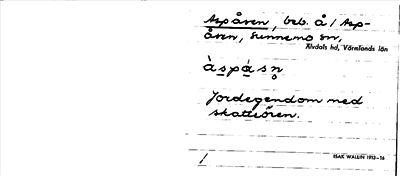 Aspåsen, beb. å / Asp-
åsen, Sunnemo sn,
Älvdals hd, Värmlands län
à s p á s n̥
Jordegendom med
skatteören.
/
ESAK WALLIN 1912-16